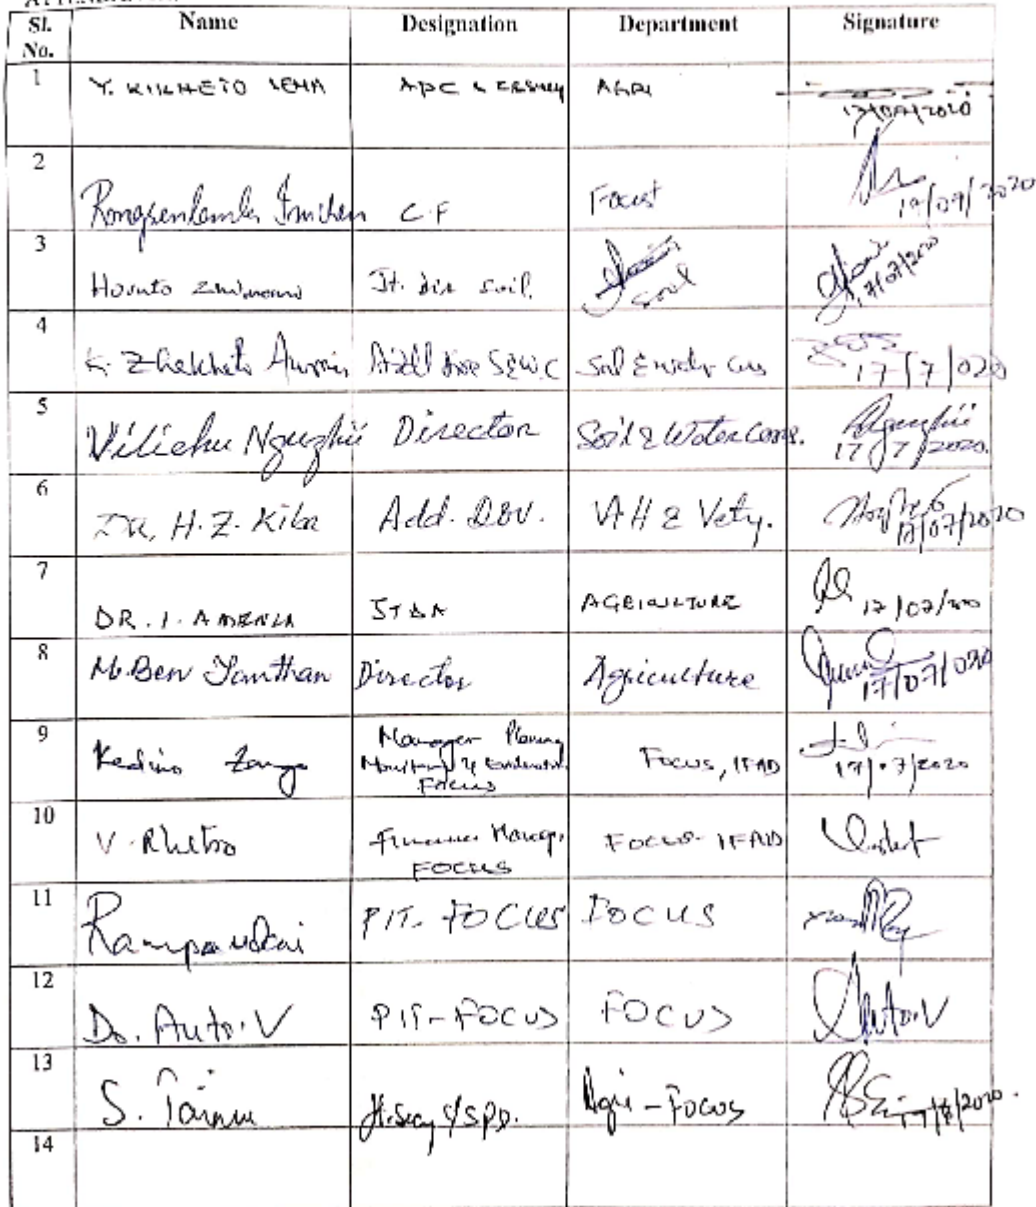 Sl. No. Name Designation Department Signature
1 Y. KIKHETO SEMA APC & AGRI 17/07/2020
2 Rongsenlemba Imchen C.F Forest 17/07/2020
3 Hovuto Zhimomi Jt. dir soil. Soil 17/07/2020
4 K. Zhekheto Awomi Addl Dir S&WC 17/7/020
5 Vilichu Nguzhü Director Soil & Water Cons. 17/7/2020.
6 DR. H.Z. Kiba Add. VAH & Vety. 17/07/2020
7 DR. I. AMENLA JTDA AGRICULTURE 17/07/
8 M. Ben Yanthan Director Agriculture 17/07/020
9 Manager Planning
Monitoring & Evaluation Focus, IFAD 17/07/2020
Focus
10 V. Rhetso Finance Manager FOCUS-IFAD
FOCUS
11 PIT-FOCUS FOCUS
12 Dr. Auto.V PIT-FOCUS FOCUS Auto.V
13 S. Jt. Secy & SPD. Agri-Focus 17/7/2020.
14